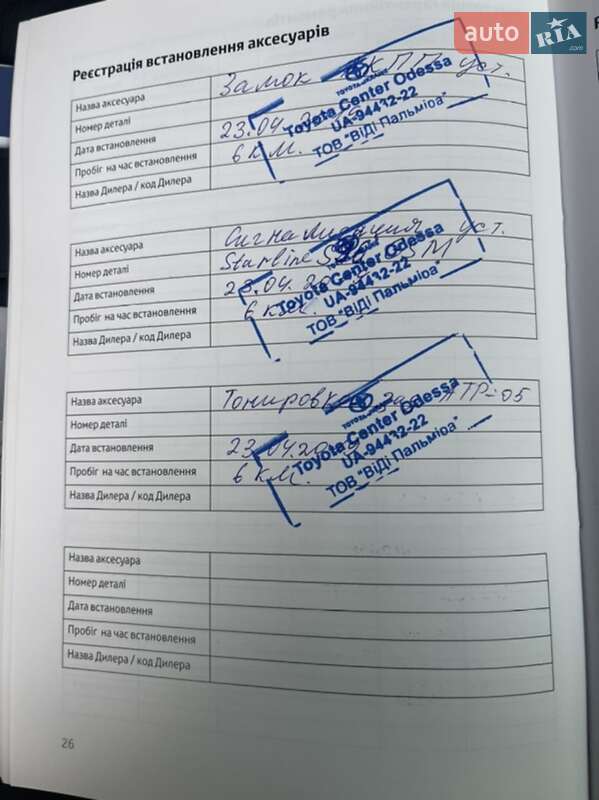 auto RIA.com
Реєстрація встановлення аксесуарів
Назва аксесуара Замок КПП уст.
Номер деталі
Дата встановлення 23.04.
Пробіг на час встановлення 6 км.
Назва Дилера / код Дилера
Toyota Center Odessa
UA-94432-22
ТОВ "ВіДі Пальміра"
Назва аксесуара Сигнализация уст.
Номер деталі Starline
Дата встановлення 23.04.
Пробіг на час встановлення 6 км.
Назва Дилера / код Дилера
Toyota Center Odessa
UA-94432-22
ТОВ "ВіДі Пальміра"
Назва аксесуара Тонировка АТР-05
Номер деталі
Дата встановлення 23.04.20
Пробіг на час встановлення 6 км.
Назва Дилера / код Дилера
Toyota Center Odessa
UA-94432-22
ТОВ "ВіДі Пальміра"
Назва аксесуара
Номер деталі
Дата встановлення
Пробіг на час встановлення
Назва Дилера / код Дилера
26